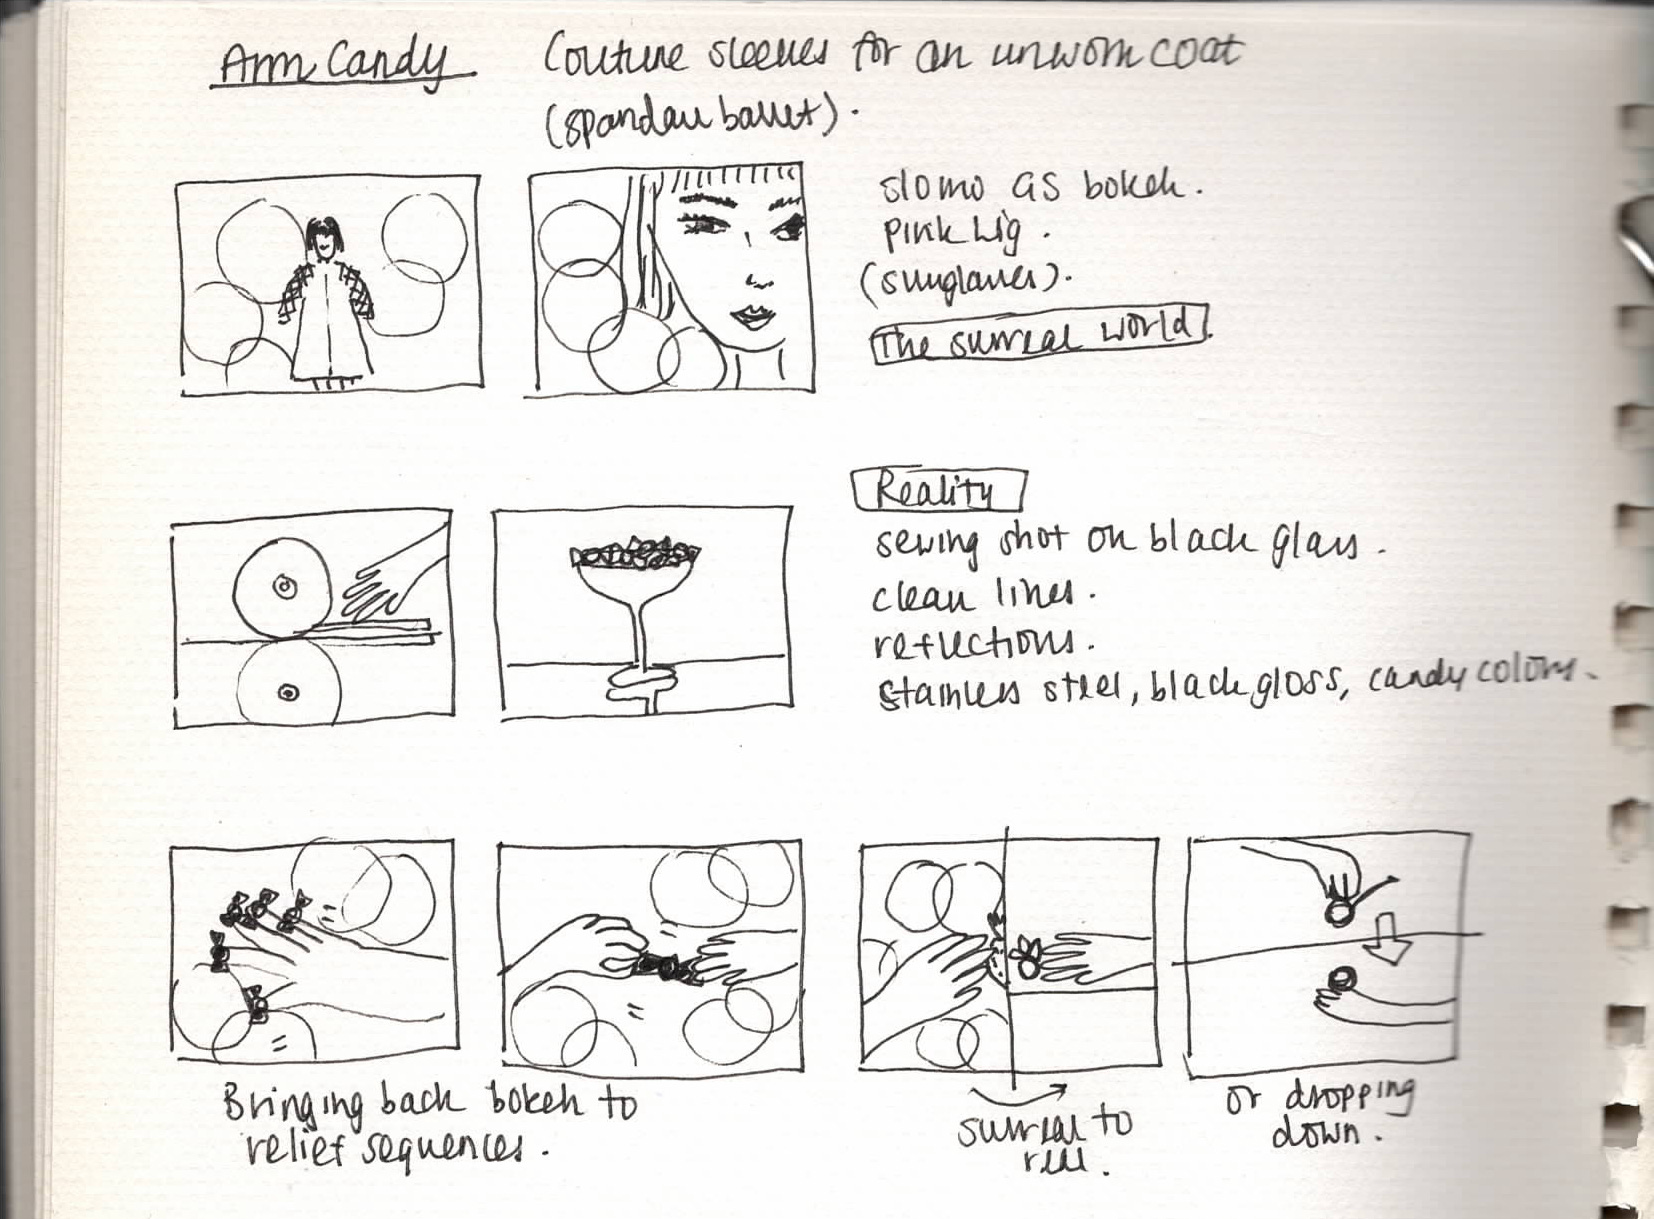 Arm Candy
Couture sleeves for an unworn coat
(spandau ballet).
slomo as bokeh.
pink wig.
(sunglasses).
The surreal world.
Reality
sewing shot on black glass.
clean lines.
reflections.
stainless steel, black gloss, candy colors.
Bringing back bokeh to
relief sequences.
surreal to
real.
or dropping
down.